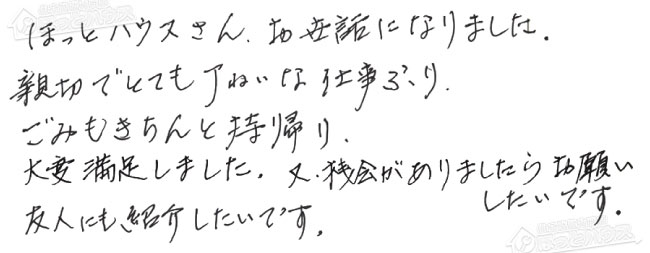 ほっとハウスさん、お世話になりました。
親切でとても丁ねいな仕事ぶり。
ごみもきちんと持帰り、
大変満足しました。又、機会がありましたらお願い
したいです。
友人にも紹介したいです。